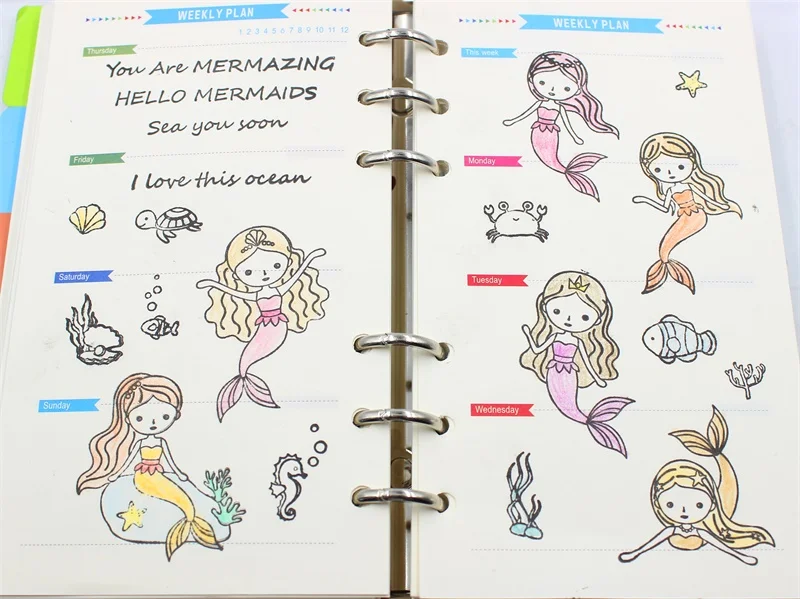 WEEKLY PLAN
1 2 3 4 5 6 7 8 9 10 11 12
Thursday
You Are MERMAZING
HELLO MERMAIDS
Sea you soon
Friday
I love this ocean
Saturday
Sunday
WEEKLY PLAN
This week
Monday
Tuesday
Wednesday